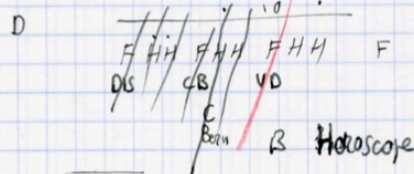 D
F H H F H H F H H F
DIS CB VD
C
Born
B Horoscope